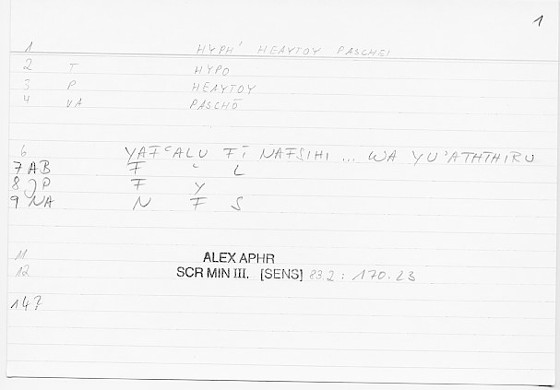 1
1 HYPH' HEAYTOY PASCHEI
2 T HYPO
3 P HEAYTOY
4 VA PASCHŌ
6 YAFʿALU FĪ NAFSIHI ... WA YU'ATHTHIRU
7 AB F ʿ L
8 JP F Y
9 NA N F S
11 ALEX APHR
12 SCR MIN III. [SENS] 83.2 : 170.23
147